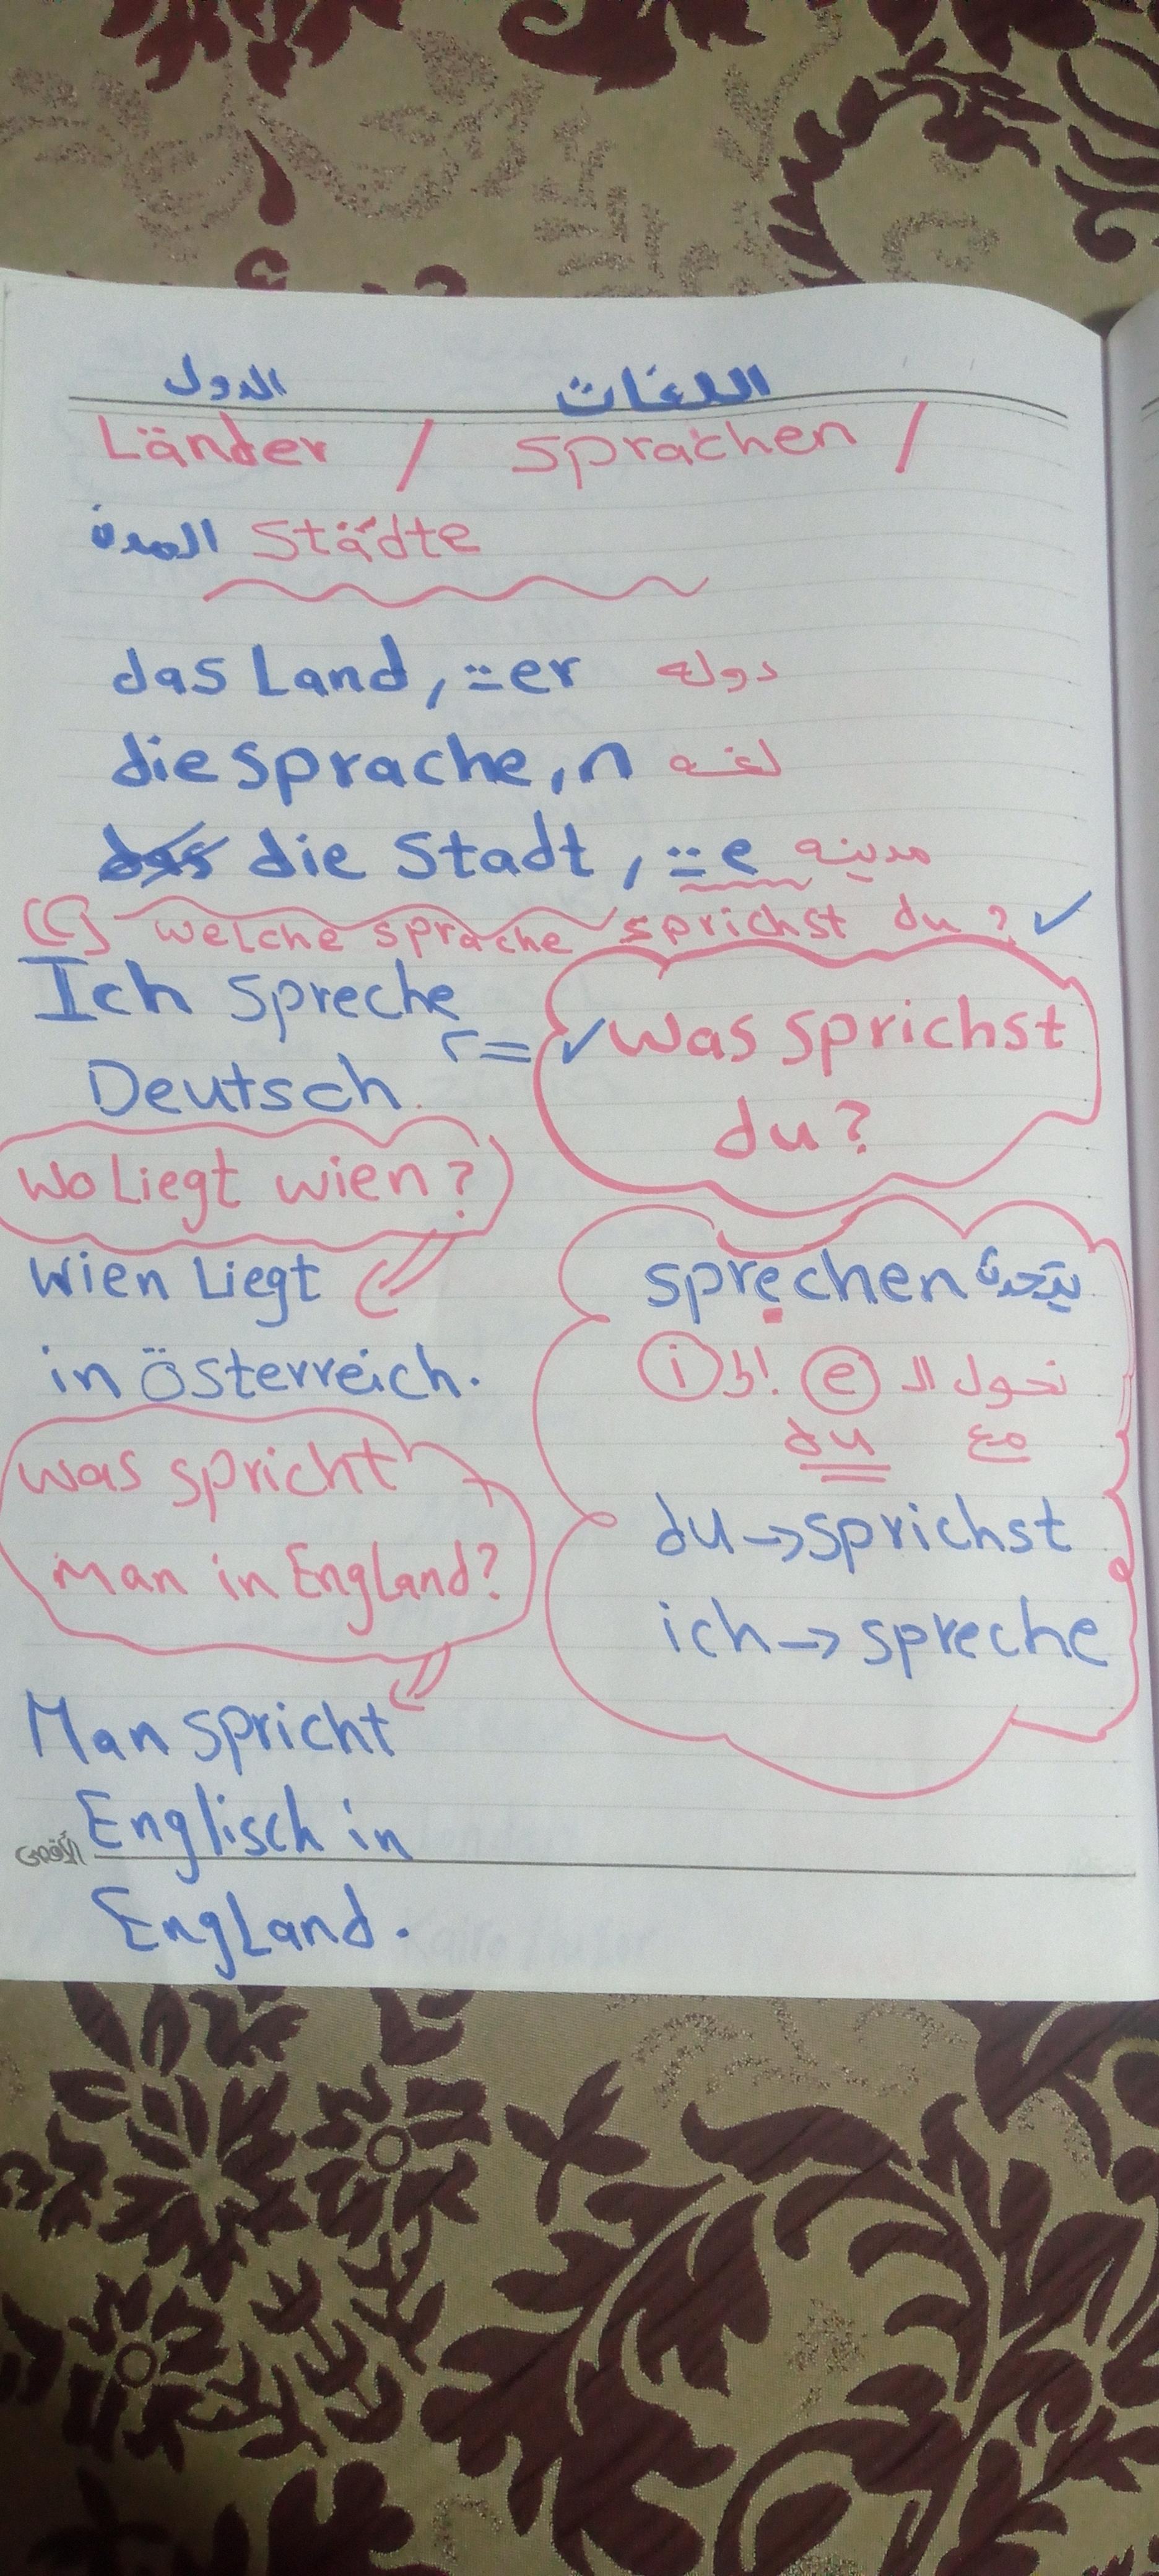 الدول اللغات
Länder / Sprachen /
المدن Städte
das Land, ⸚er دوله
die sprache, n لغه
das die Stadt, ⸚e مدينه
welche sprache sprichst du?
Ich spreche
Deutsch.
was sprichst
du?
wo Liegt wien?
wien Liegt
in Österreich.
was spricht
man in England?
Man spricht
Englisch in
England.
sprechen يتحدث
نحول الـ e إلى i
مع du
du → sprichst
ich → spreche